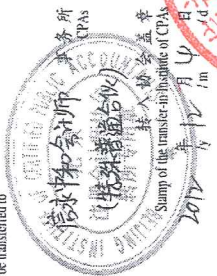 be transferred to
信永中和会计师 事务所
CPAs
(特殊普通合伙)
转入协会盖章
Stamp of the transfer-in Institute of CPAs
2012 年 12 月 4 日
/y /m /d
BEIJING